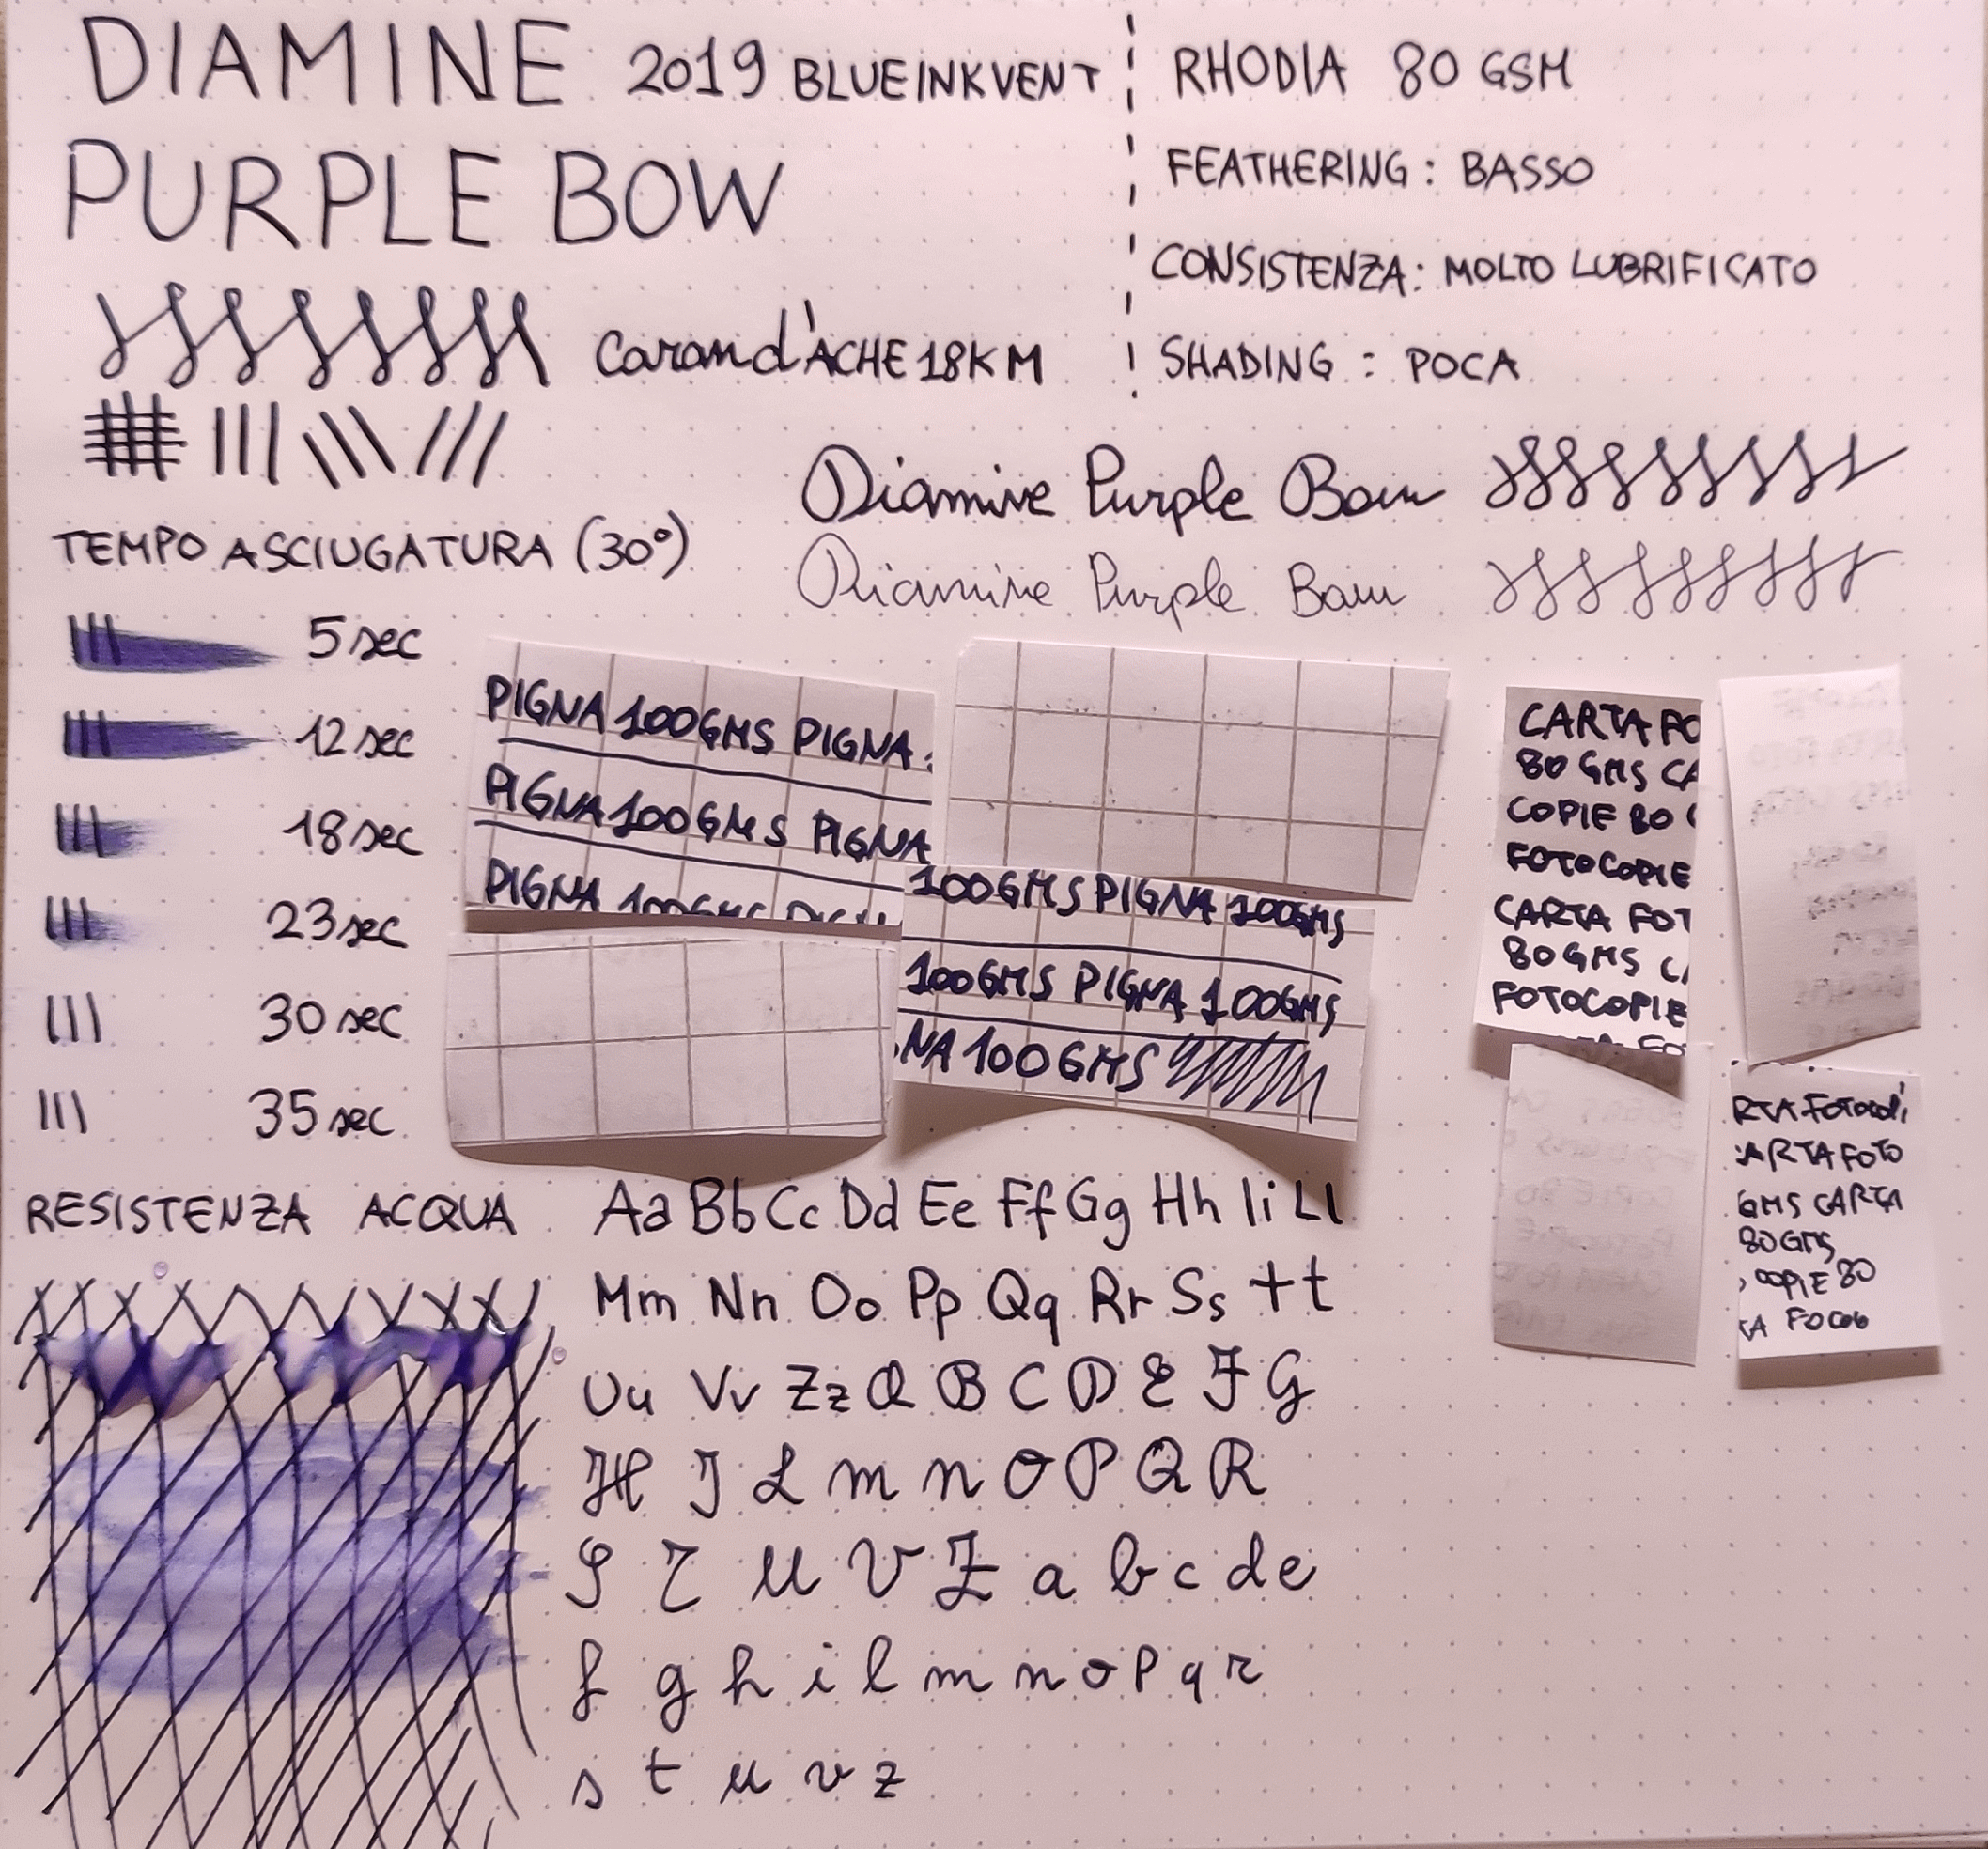 DIAMINE 2019 BLUE INKVENT
PURPLE BOW
Caran d'ACHE 18K M
RHODIA 80 GSM
FEATHERING: BASSO
CONSISTENZA: MOLTO LUBRIFICATO
SHADING: POCA
Diamine Purple Bow
Diamine Purple Bow
TEMPO ASCIUGATURA (30°)
5 sec
12 sec
18 sec
23 sec
30 sec
35 sec
PIGNA 100GMS PIGNA
PIGNA 100GMS PIGNA
PIGNA 100GMS
100GMS PIGNA 100GMS
100GMS PIGNA 100GMS
NA 100GMS
CARTA FO
80 GMS CA
COPIE 80
FOTOCOPIE
CARTA FOT
80 GMS
FOTOCOPIE
ARTA FOTO
GMS CARTA
80 GMS
COPIE 80
RESISTENZA ACQUA
Aa Bb Cc Dd Ee Ff Gg Hh Ii Ll
Mm Nn Oo Pp Qq Rr Ss Tt
Uu Vv Zz A B C D E F G
H I L M N O P Q R
S T U V Z a b c d e
f g h i l m n o p q r
s t u v z